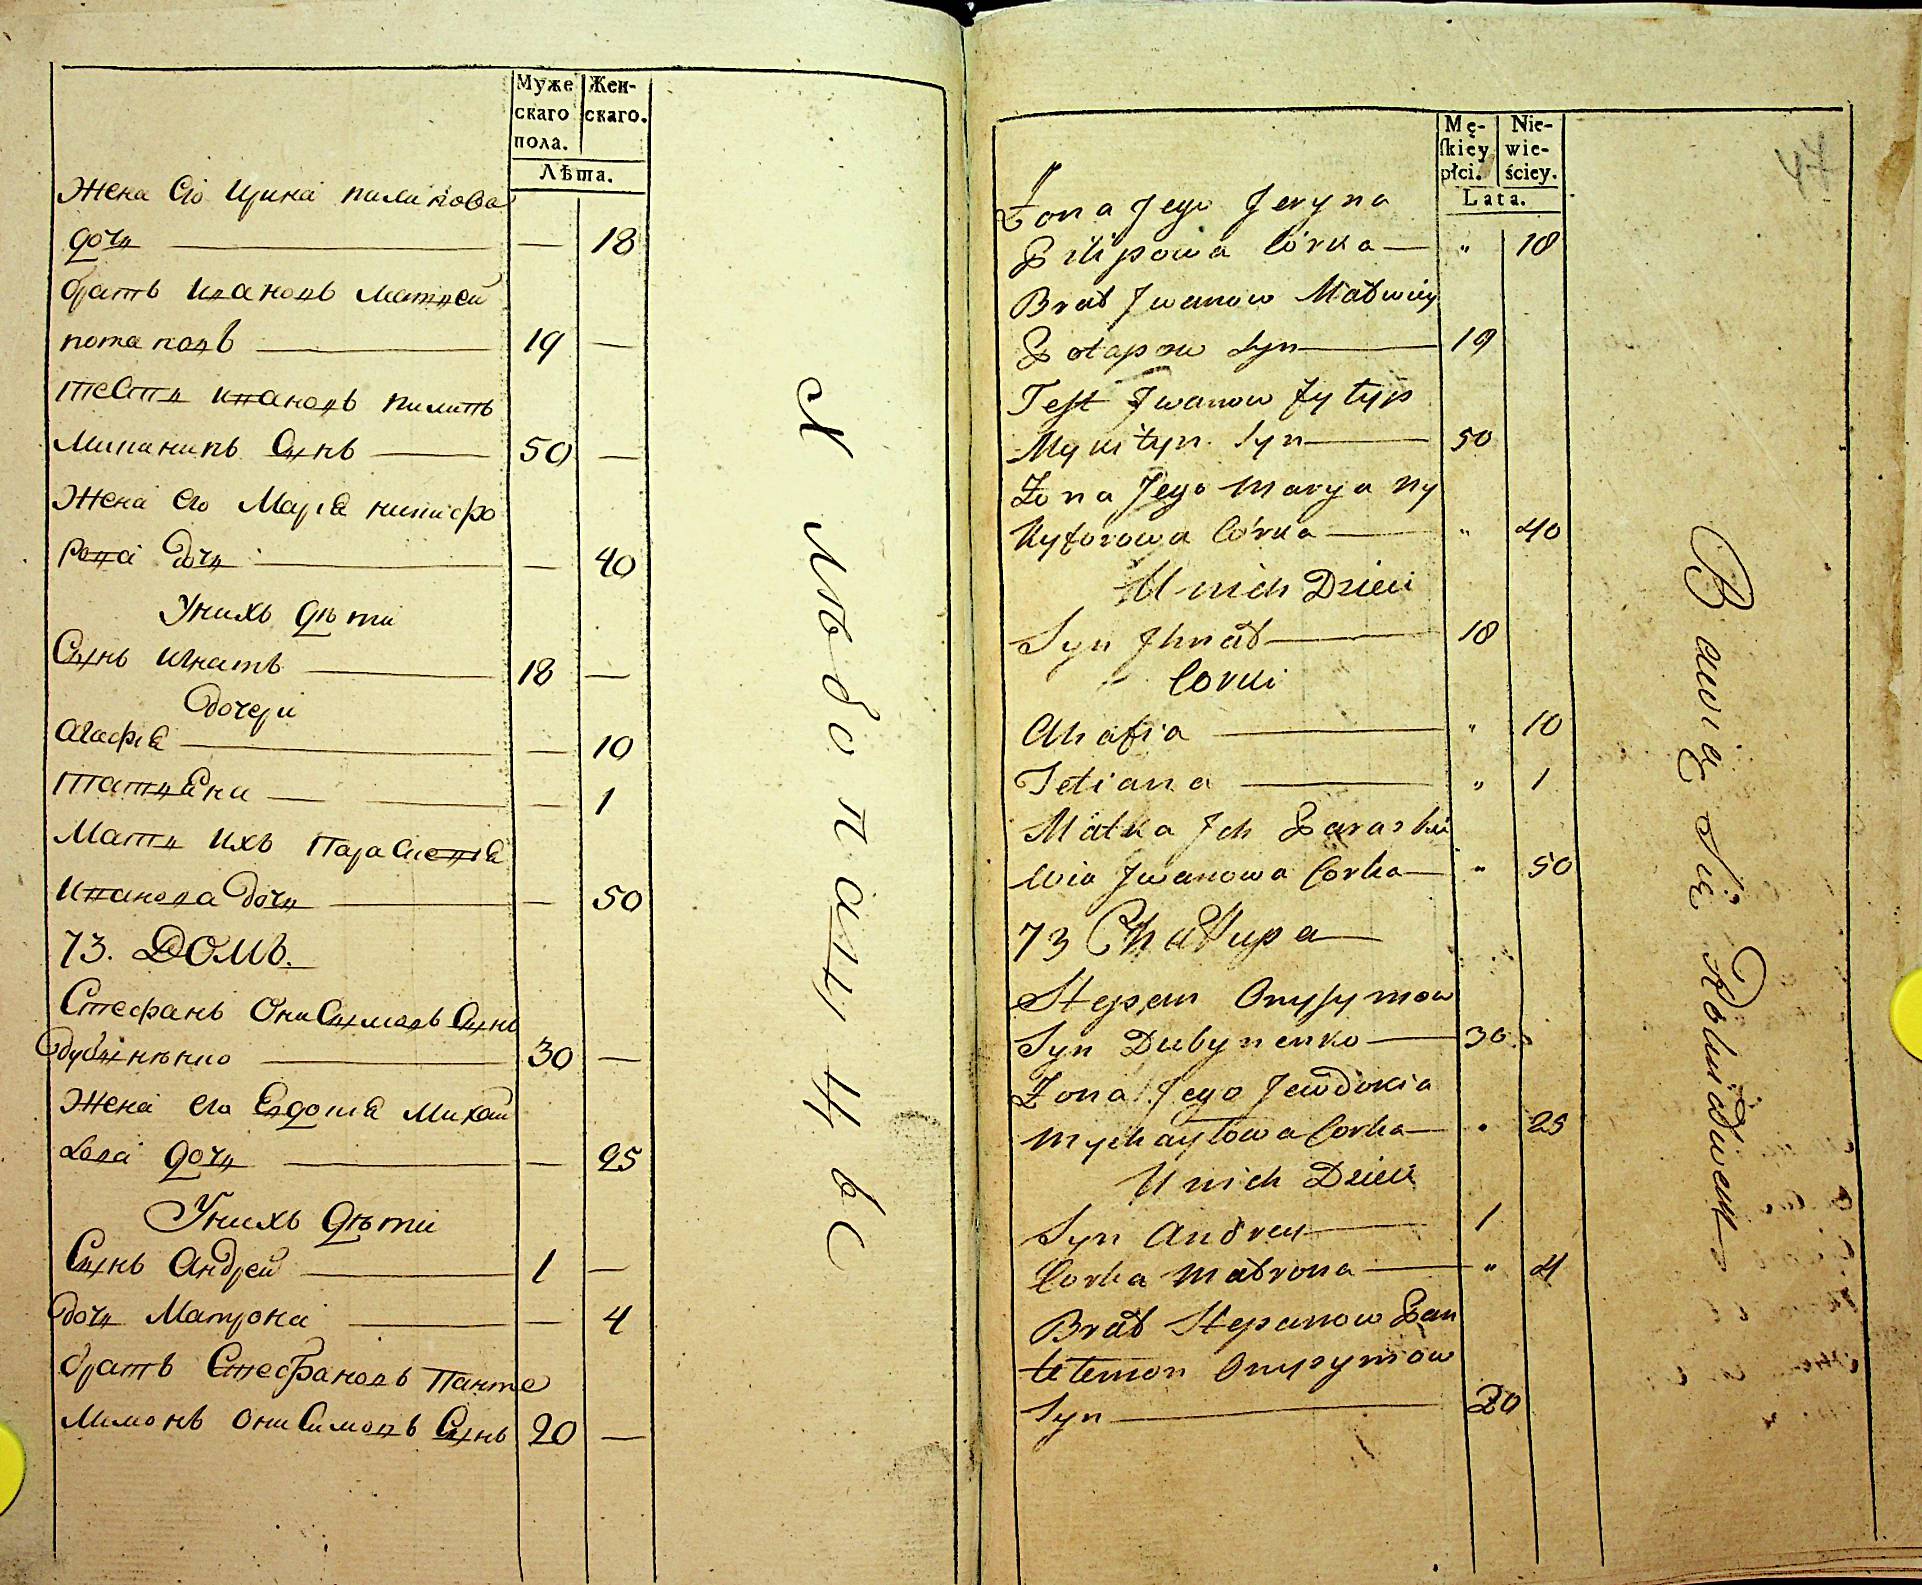 Муже
скаго
пола.
Жен-
скаго.
Лѣта.
Жена его Ирина пилипова
дочь — 18
братъ Ивановъ Матвей
потаповъ 19 —
тесть ивановъ пилипъ
Микитинъ Сынъ 50 —
Жена его Марія никифо
рова дочь — 40
У нихъ дѣти
Сынъ игнатъ 18 —
дочери
агафія — 10
татіяна — 1
Мать ихъ Параскевія
иванова дочь — 50
73. Домъ.
Стефанъ Онисимовъ Сынъ
дубиненко 30 —
Жена его Евдокія Михай
лова дочь — 25
У нихъ дѣти
Сынъ Андрей 1 —
дочь Матрона — 4
братъ Стефановъ Панте
лимонъ онисимовъ Сынъ 20 —
Хлѣбопашецъ
Mę-
skiey
płci.
Nie-
wie-
ściey.
Lata.
47
Żona Jego Jeryna
Pilipowa Córka — " 18
Brat Jwanow Matwiey
Potapow Syn 19
Test Jwanow Fylyp
Mykityn Syn 50
Żona Jego Marya Ny
kyforowa Córka — " 40
U nich Dzieci
Syn Jhnat 18
Corki
Ahafia " 10
Tetiana " 1
Matka Jch Paraski
wia Jwanowa Corka — " 50
73 Chałupa
Stepan Onysymow
Syn Dubynenko 30
Żona Jego Jewdokia
Mychayłowa Corka — " 25
U nich Dzieci
Syn Andrey 1
Corka Matrona " 4
Brat Stepanow Pan
telemon Onysymow
Syn 20
Bawią się Rolnictwem